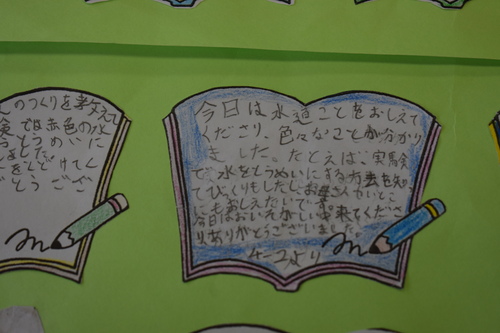 のつくりを教えて
験では赤色の水
とうめいに
しました。
とう ござ
今日は水道ことをおしえて
くださり、色々なことが分かり
ました。たとえば、実験
で、水をとうめいにする方法を知っ
てびっくりもしたし、お母さんやいとこ
にもおしえたいです。
今日はおいそがしい中来てくださ
りありがとうございました。
4-2より